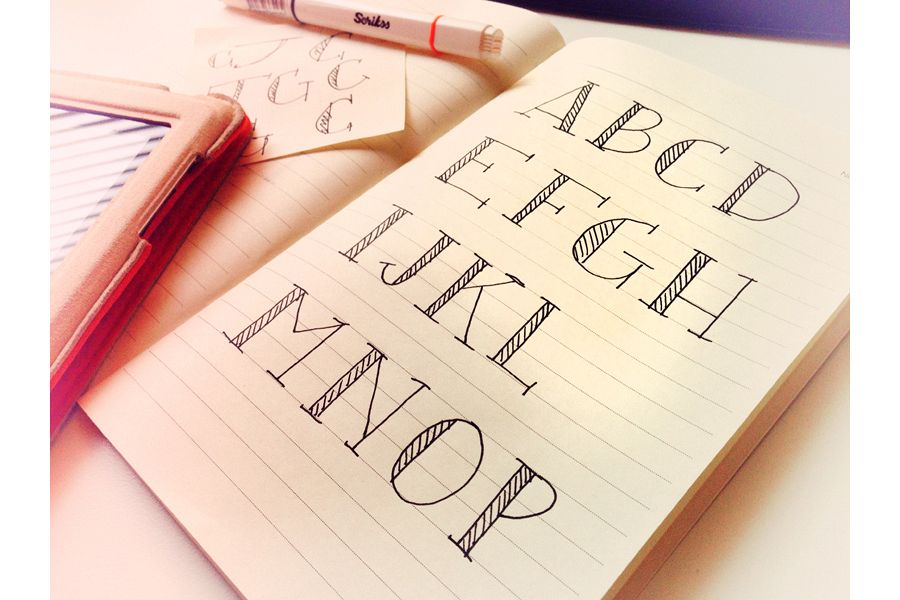 Scrikss
C J C
T G C
C
A B C D
E F G H
I J K L
M N O P